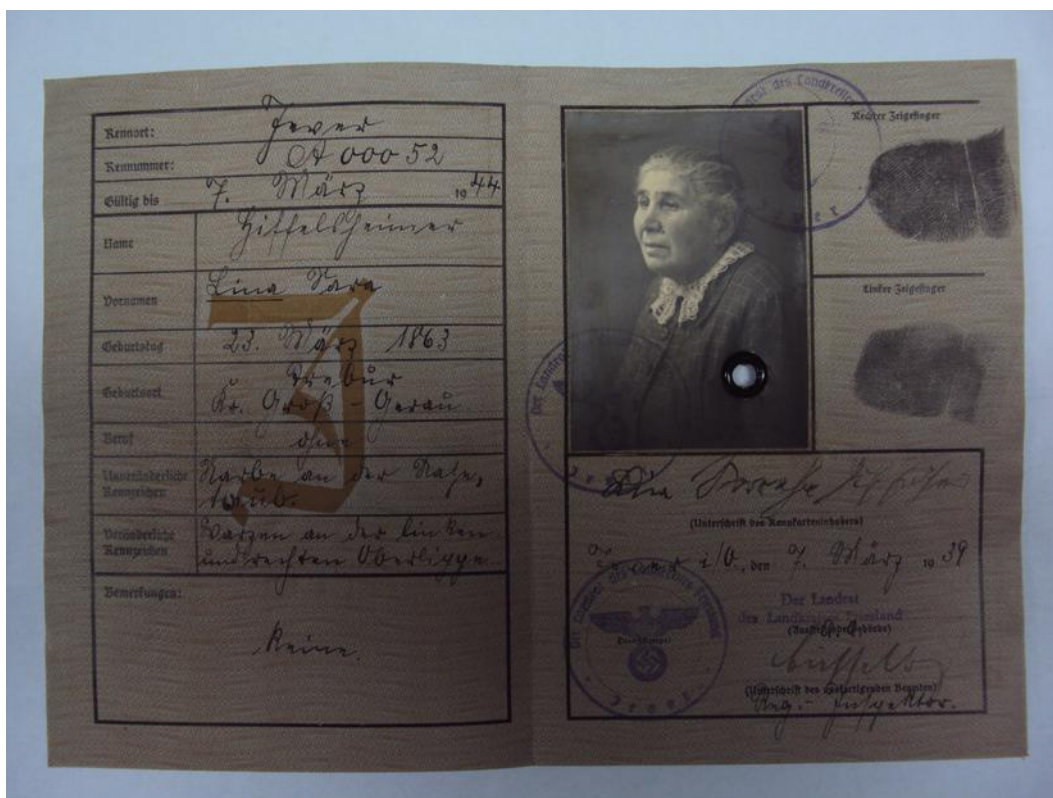 Kennort: Jever
Kennummer: A 00052
Gültig bis 7. März 1944
Name Hiffelsheimer
Vornamen Lina Sara
Geburtstag 23. März 1863
Geburtsort Trebur
Kr. Groß-Gerau
Beruf ohne
Unveränderliche Narbe an der Nase,
Kennzeichen taub.
Veränderliche Warzen an der linken
Kennzeichen und rechten Oberlippe
Bemerkungen:
Keine.
J
Rechter Zeigefinger
Linker Zeigefinger
Der Landrat
Jever
(Unterschrift des Kennkarteninhabers)
Jever i/O., den 7. März 1939
Der Landrat
des Landkreises Friesland
(Ausstellende Behörde)
(Unterschrift des ausfertigenden Beamten)
Reg.-Inspektor.
Dienststempel
Jever